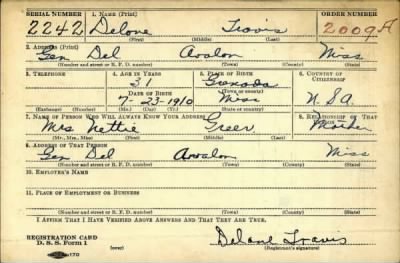 SERIAL NUMBER 1. NAME (Print) ORDER NUMBER
2242 Delone Travis 2009A
(First) (Middle) (Last)
2. ADDRESS (Print)
Gen Del Avalon Miss
(Number and street or R. F. D. number) (Town) (County) (State)
3. TELEPHONE 4. AGE IN YEARS 5. PLACE OF BIRTH 6. COUNTRY OF CITIZENSHIP
31 Grenada
DATE OF BIRTH (Town or county)
7-23-1910 Miss U.S.A.
(Exchange) (Number) (Mo.) (Day) (Yr.) (State or country)
7. NAME OF PERSON WHO WILL ALWAYS KNOW YOUR ADDRESS 8. RELATIONSHIP OF THAT PERSON
Mrs Nettie Greer Mother
(Mr., Mrs., Miss) (First) (Middle) (Last)
9. ADDRESS OF THAT PERSON
Gen Del Avalon Miss
(Number and street or R. F. D. number) (Town) (County) (State)
10. EMPLOYER'S NAME
11. PLACE OF EMPLOYMENT OR BUSINESS
(Number and street or R. F. D. number) (Town) (County) (State)
I AFFIRM THAT I HAVE VERIFIED ABOVE ANSWERS AND THAT THEY ARE TRUE.
REGISTRATION CARD
D. S. S. Form 1 (over) Delone Travis
170 (Registrant's signature)